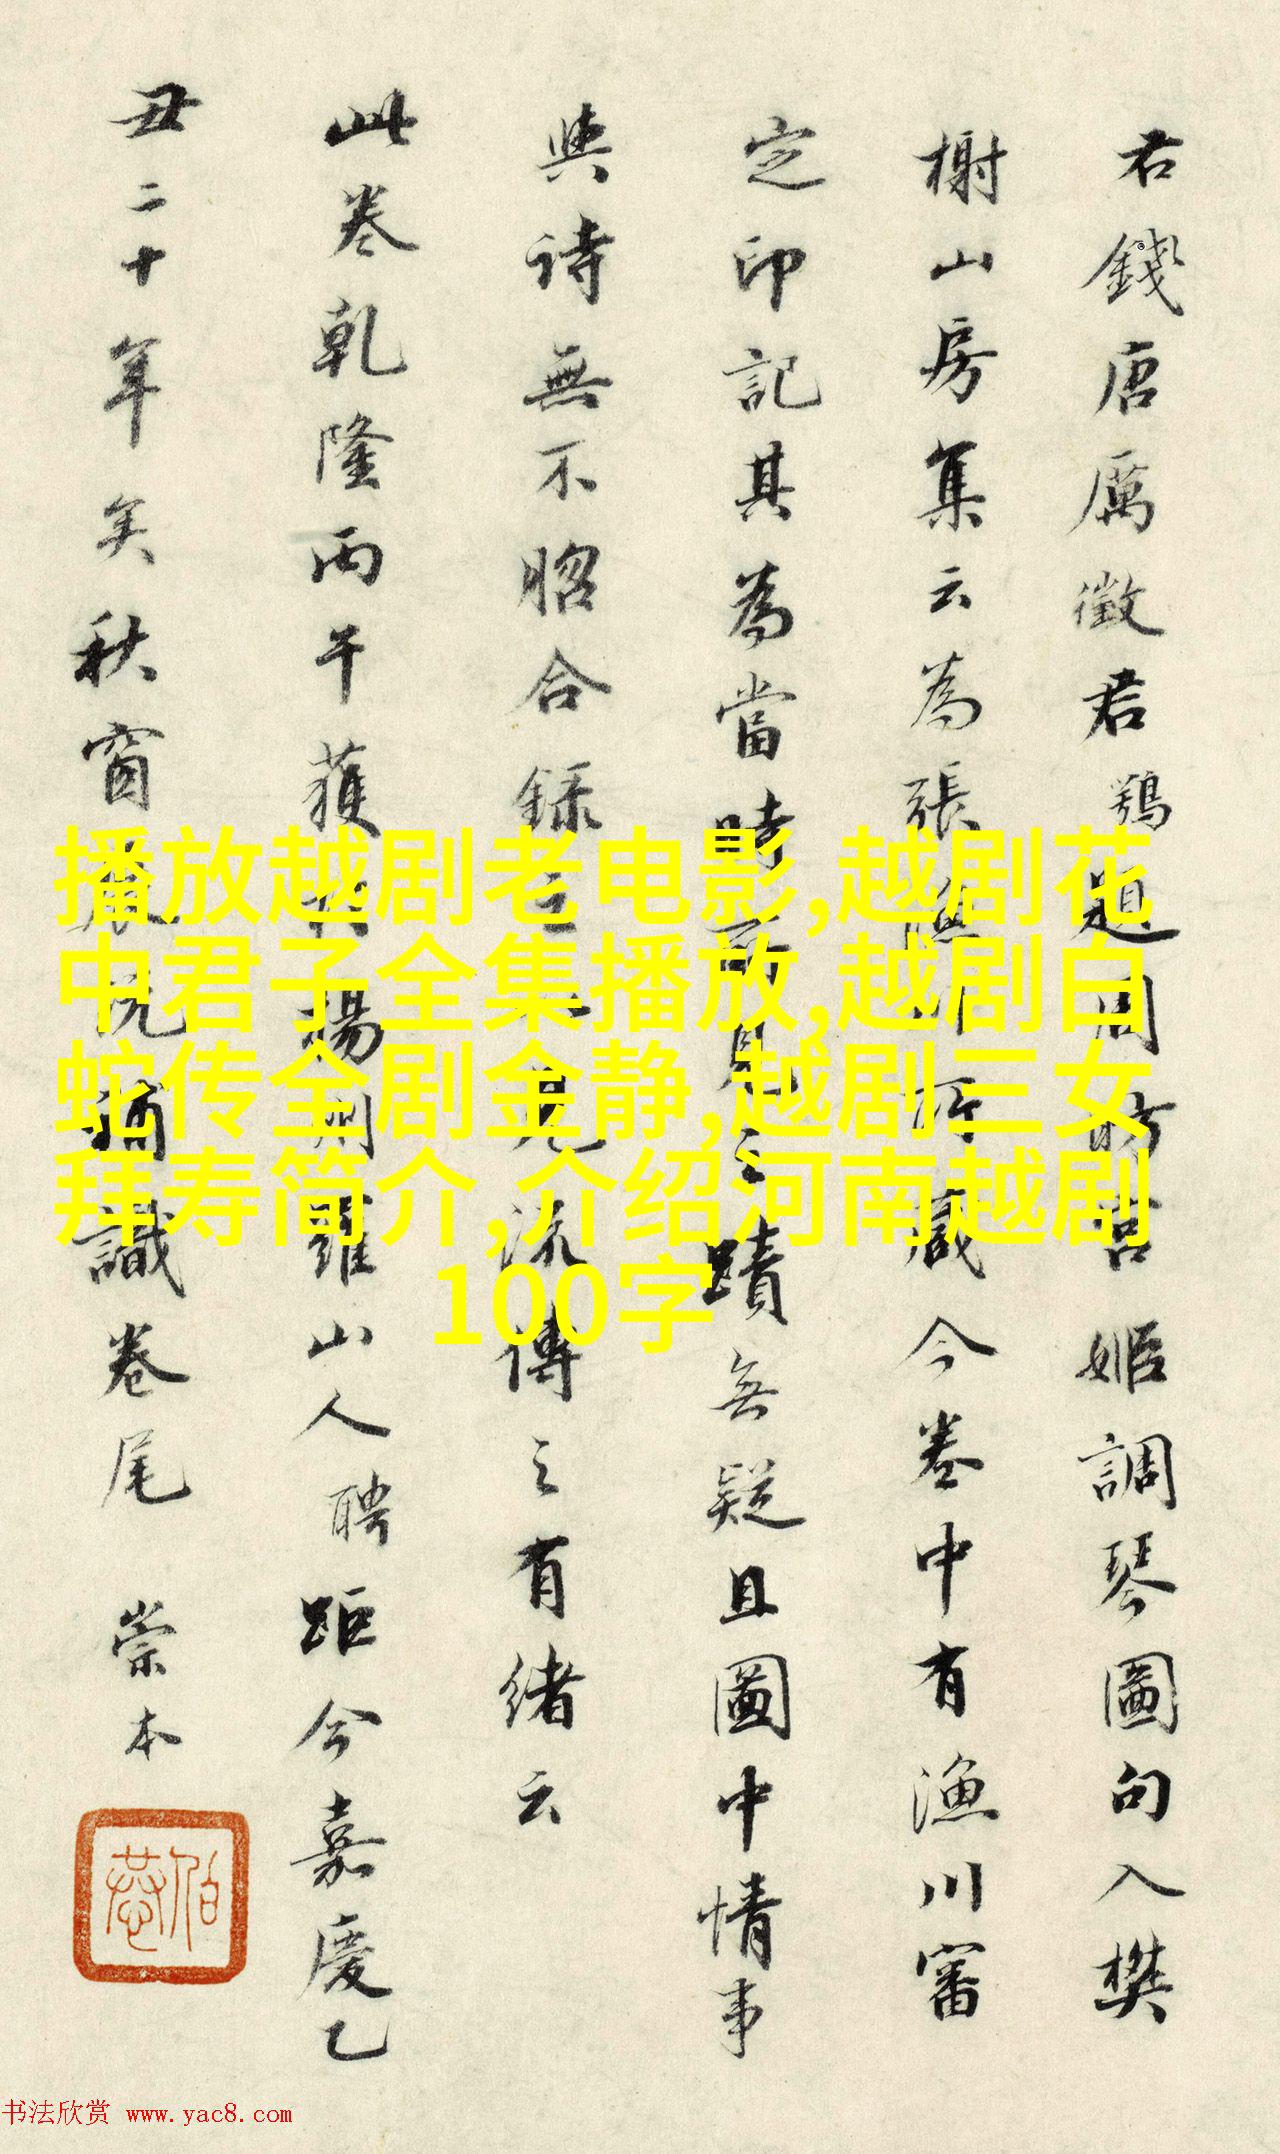 右錢唐厲徵君鶚題周昉宮姬調琴圖句入樊
榭山房集云為張漁川所藏今卷中有漁川審
定印記其為當時所見之蹟無疑且圖中情事
與詩無不脗合錄之以見流傳之有緒云
此卷乾隆丙午獲於揚州羅山人聘距今嘉慶乙
丑二十年矣秋窗展玩補識卷尾 崇本
播放越剧老电影,越剧花
中君子全集播放,越剧白
蛇传全剧金静,越剧三女
拜寿简介,介绍河南越剧
100字
书法欣赏 www.yac8.com